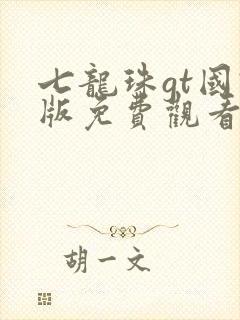 七龍珠gt國
版免費觀看
胡一文